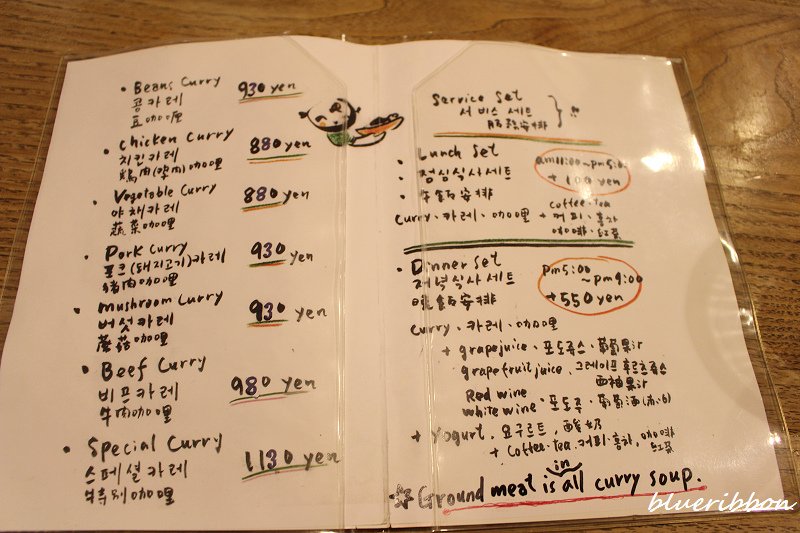 • Beans Curry 930 yen
콩카레
豆咖喱
• Chicken Curry 880 yen
치킨카레
鶏肉(鸡肉)咖喱
• Vegetable Curry 880 yen
야채카레
蔬菜咖喱
• Pork Curry 930 yen
포크(돼지고기)카레
猪肉咖喱
• mushroom Curry 930 yen
버섯카레
蘑菇咖喱
• Beef Curry 980 yen
비프카레
牛肉咖喱
• Special Curry 1130 yen
스페셜카레
特别咖喱
Service Set
서비스 세트
服務安排
• Lunch Set am11:00~pm5:00
• 점심식사세트 +100 yen
• 午飯安排
Curry・카레・咖喱 + coffee・tea
커피・홍차
咖啡・红茶
• Dinner Set pm5:00
저녁식사세트 ~pm9:00
晩飯安排 +550 yen
Curry・카레・咖喱
+ grapejuice・포도쥬스・葡萄果汁
grapefruit juice・그레이프후르츠쥬스
西柚果汁
Red wine
white wine・포도주・葡萄酒
+ Yogurt・요구르트・酸奶
+ Coffee・tea・커피・홍차・咖啡
红茶
Ground meat is in all curry soup.
blueribbon